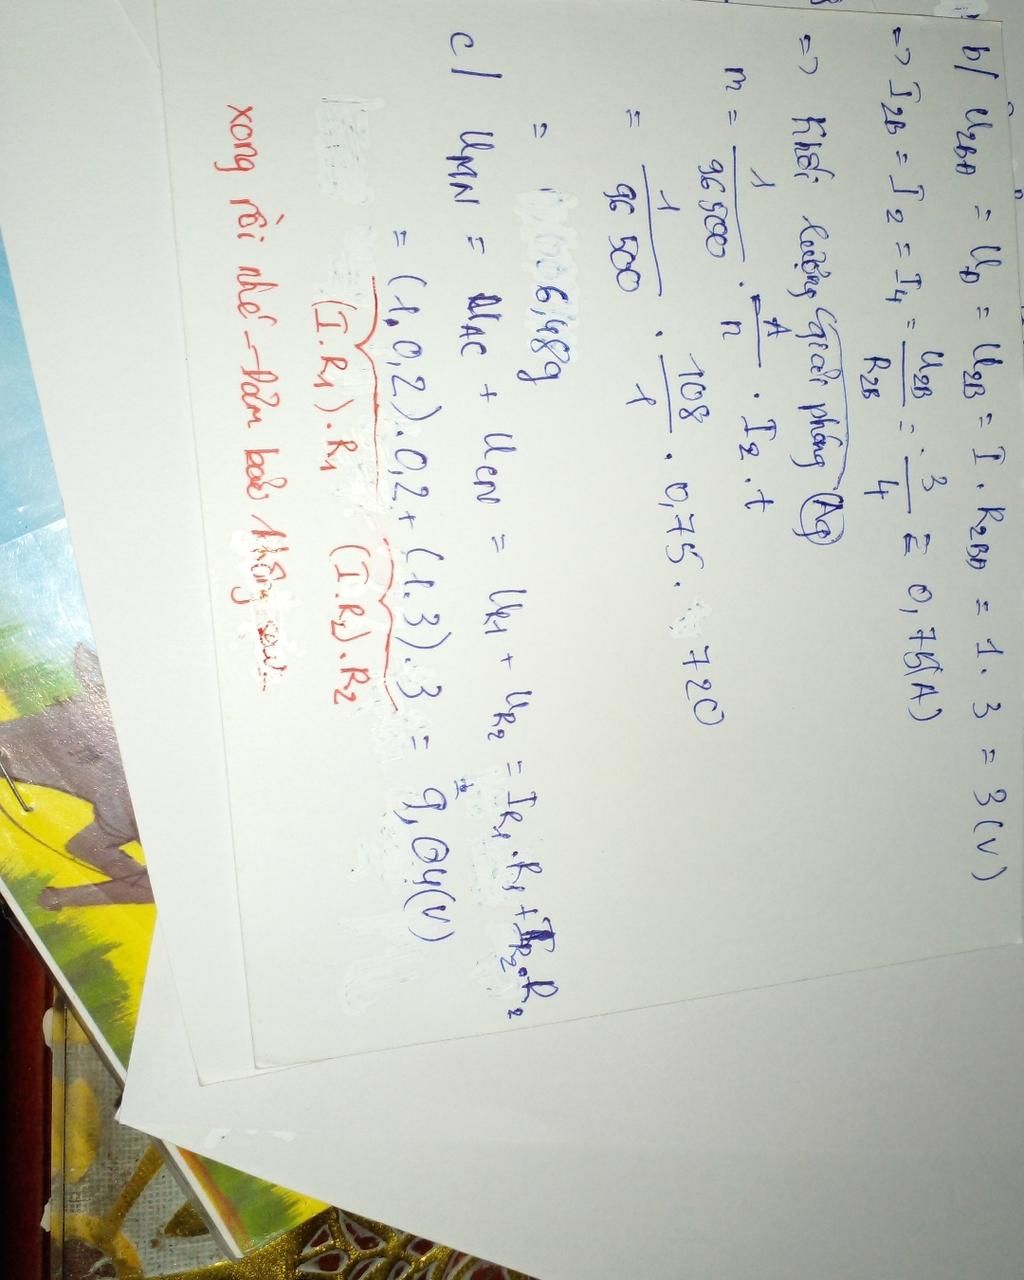 b/ U2BĐ = UĐ = U2B = I . R2BĐ = 1 . 3 = 3 (V)
=> I2B = I2 = I4 = U2B / R2B = 3 / 4 = 0,75(A)
=> Khối lượng (giải phóng Ag)
m = 1 / 96500 . A / n . I2 . t
= 1 / 96 500 . 108 / 1 . 0,75 . 720
= 06,48g
c/ UMN = UAC + UCN = UR1 + UR2 = IR1 . R1 + IR2 . R2
= (1.0,2).0,2 + (1.3).3 = 9,04(V)
(I.R1).R1 (I.R2).R2
xong rồi nhé - đảm bảo không sai...